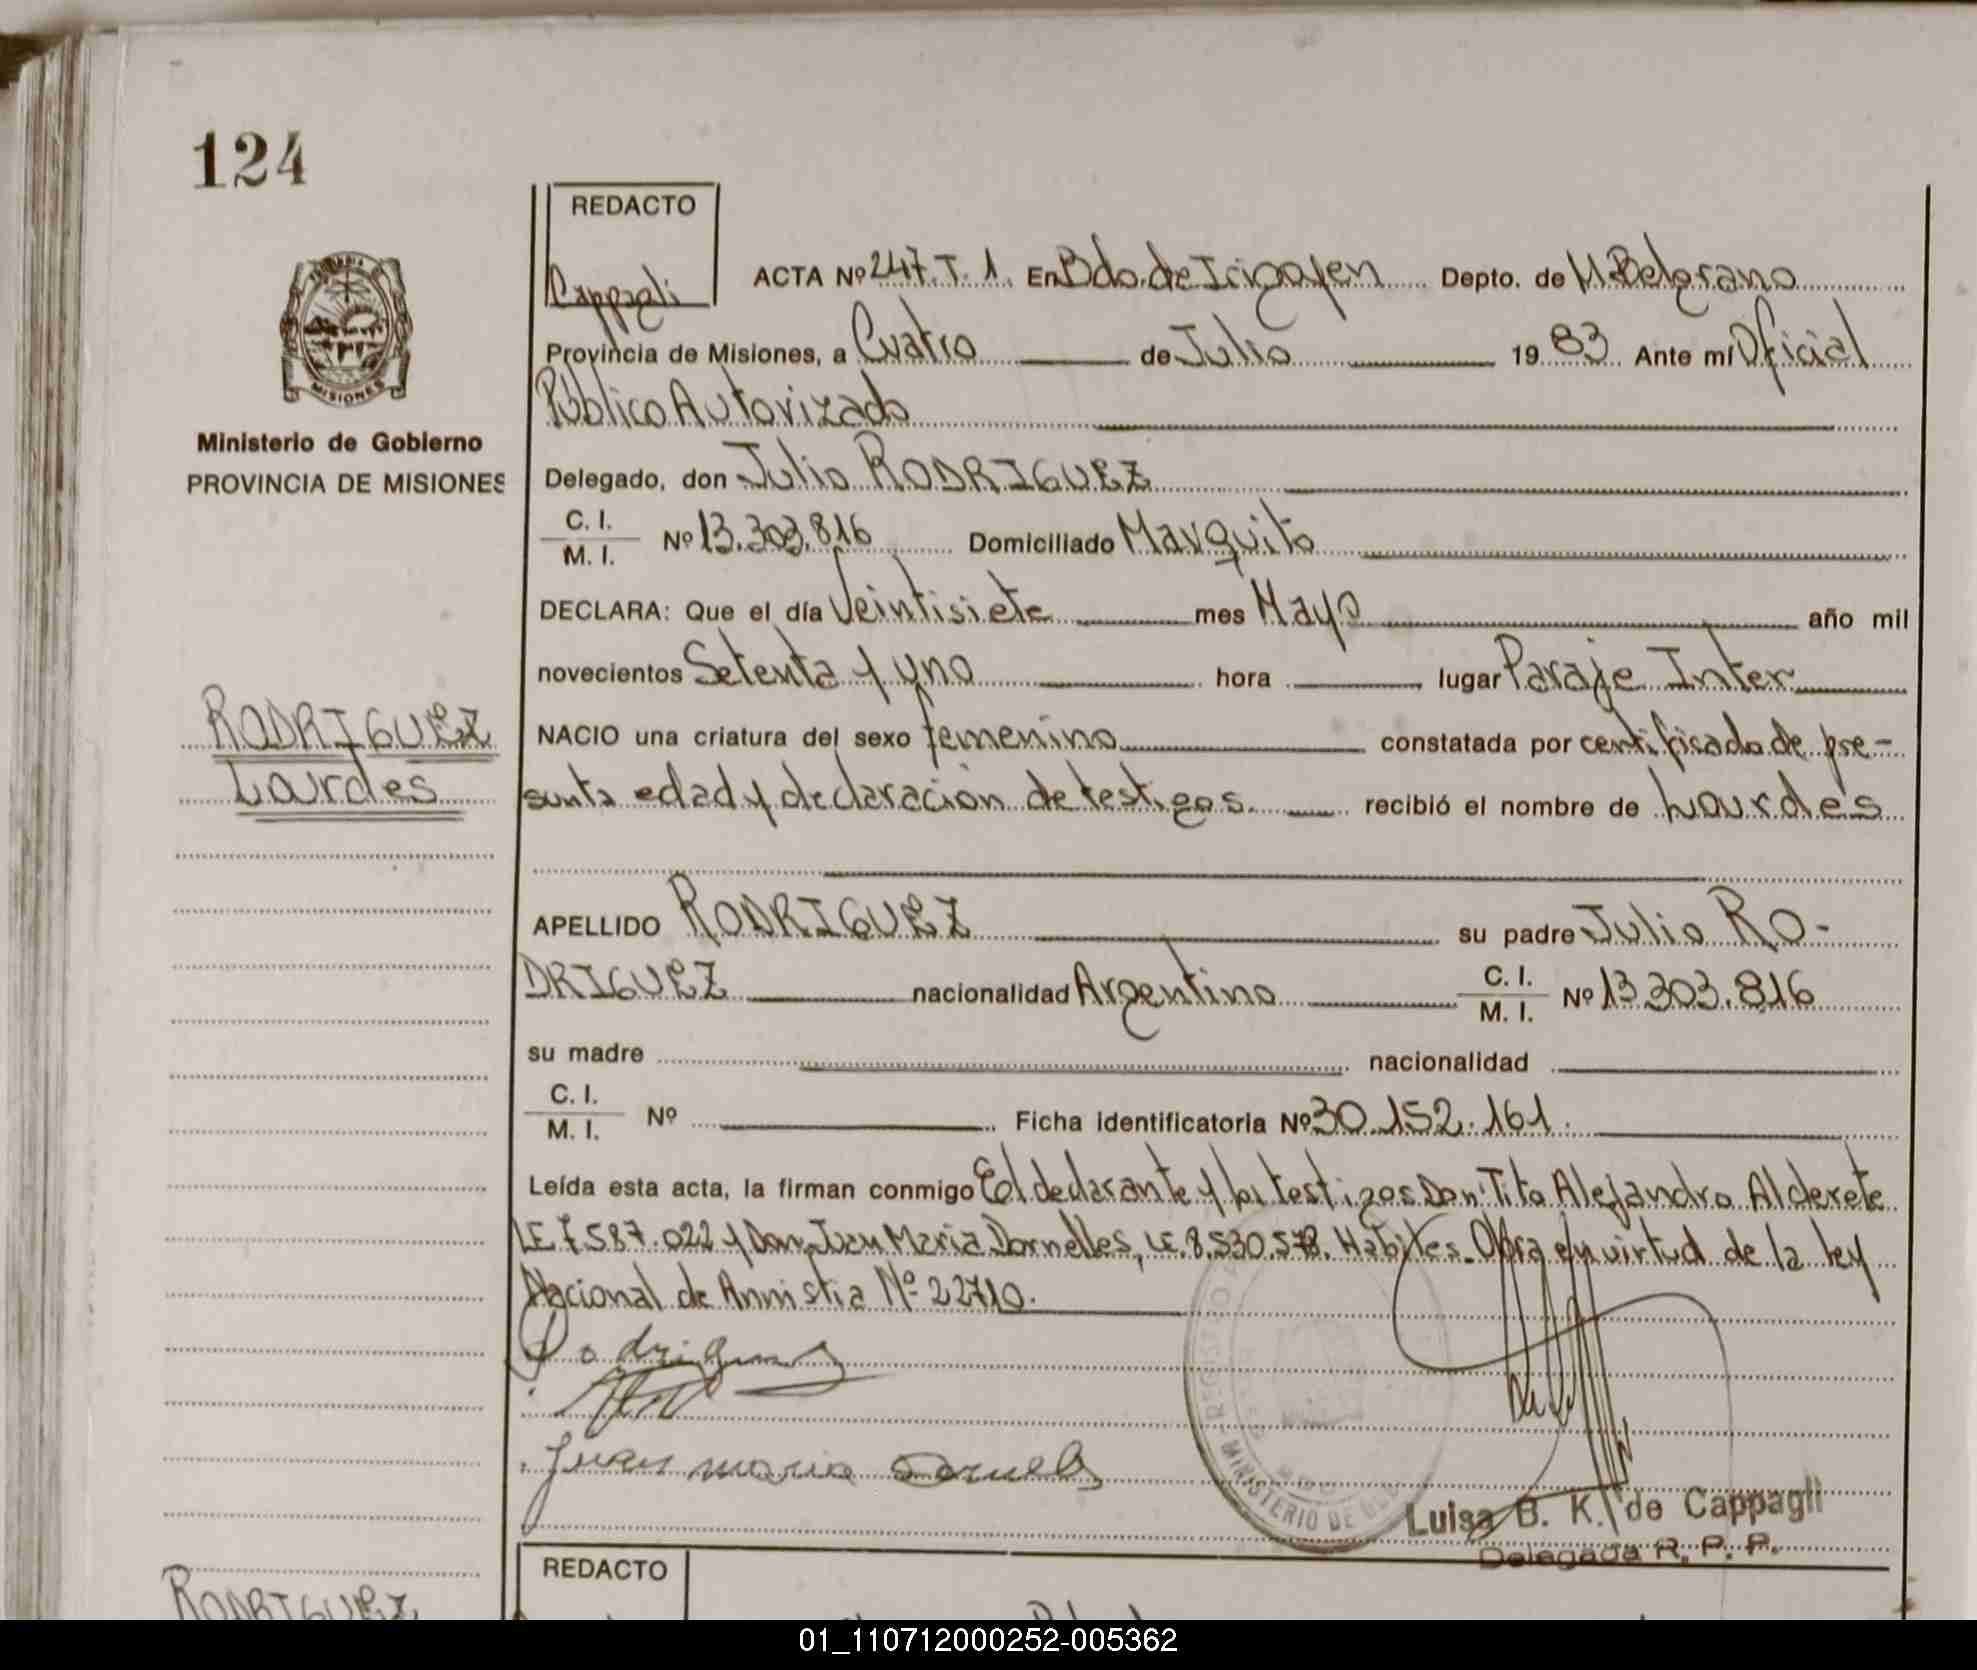 124
REDACTO
Cappagli
ACTA Nº 247.T.1. En Bdo. de Irigoyen Depto. de M. Belgrano
Provincia de Misiones, a Cuatro de Julio 19 83 Ante mí Oficial
Público Autorizado
Ministerio de Gobierno
PROVINCIA DE MISIONES
Delegado, don Julio RODRIGUEZ
C. I.
M. I. Nº 13.303.816 Domiciliado Marquito
DECLARA: Que el día Veintisiete mes Mayo año mil
novecientos Setenta y uno hora lugar Paraje Inter
RODRIGUEZ
Lourdes
NACIO una criatura del sexo femenino constatada por certificado de pre-
sunta edad y declaración de testigos. recibió el nombre de Lourdes
APELLIDO RODRIGUEZ su padre Julio RO-
DRIGUEZ nacionalidad Argentino C. I. M. I. Nº 13.303.816
su madre nacionalidad
C. I.
M. I. Nº Ficha identificatoria Nº 30.152.161.
Leída esta acta, la firman conmigo El declarante y los testigos Don Tito Alejandro Alderete
LE 7.587.022 y Don Juan Maria Dornelles, LE. 8.530.578. Habiles. Obra en virtud de la ley
Nacional de Amnistia Nº 22710.
Rodrigues
Juan maria Dornels
MINISTERIO DE
Luisa B. K. de Cappagli
Delegada R. P. P.
REDACTO
RODRIGUEZ
01_110712000252-005362